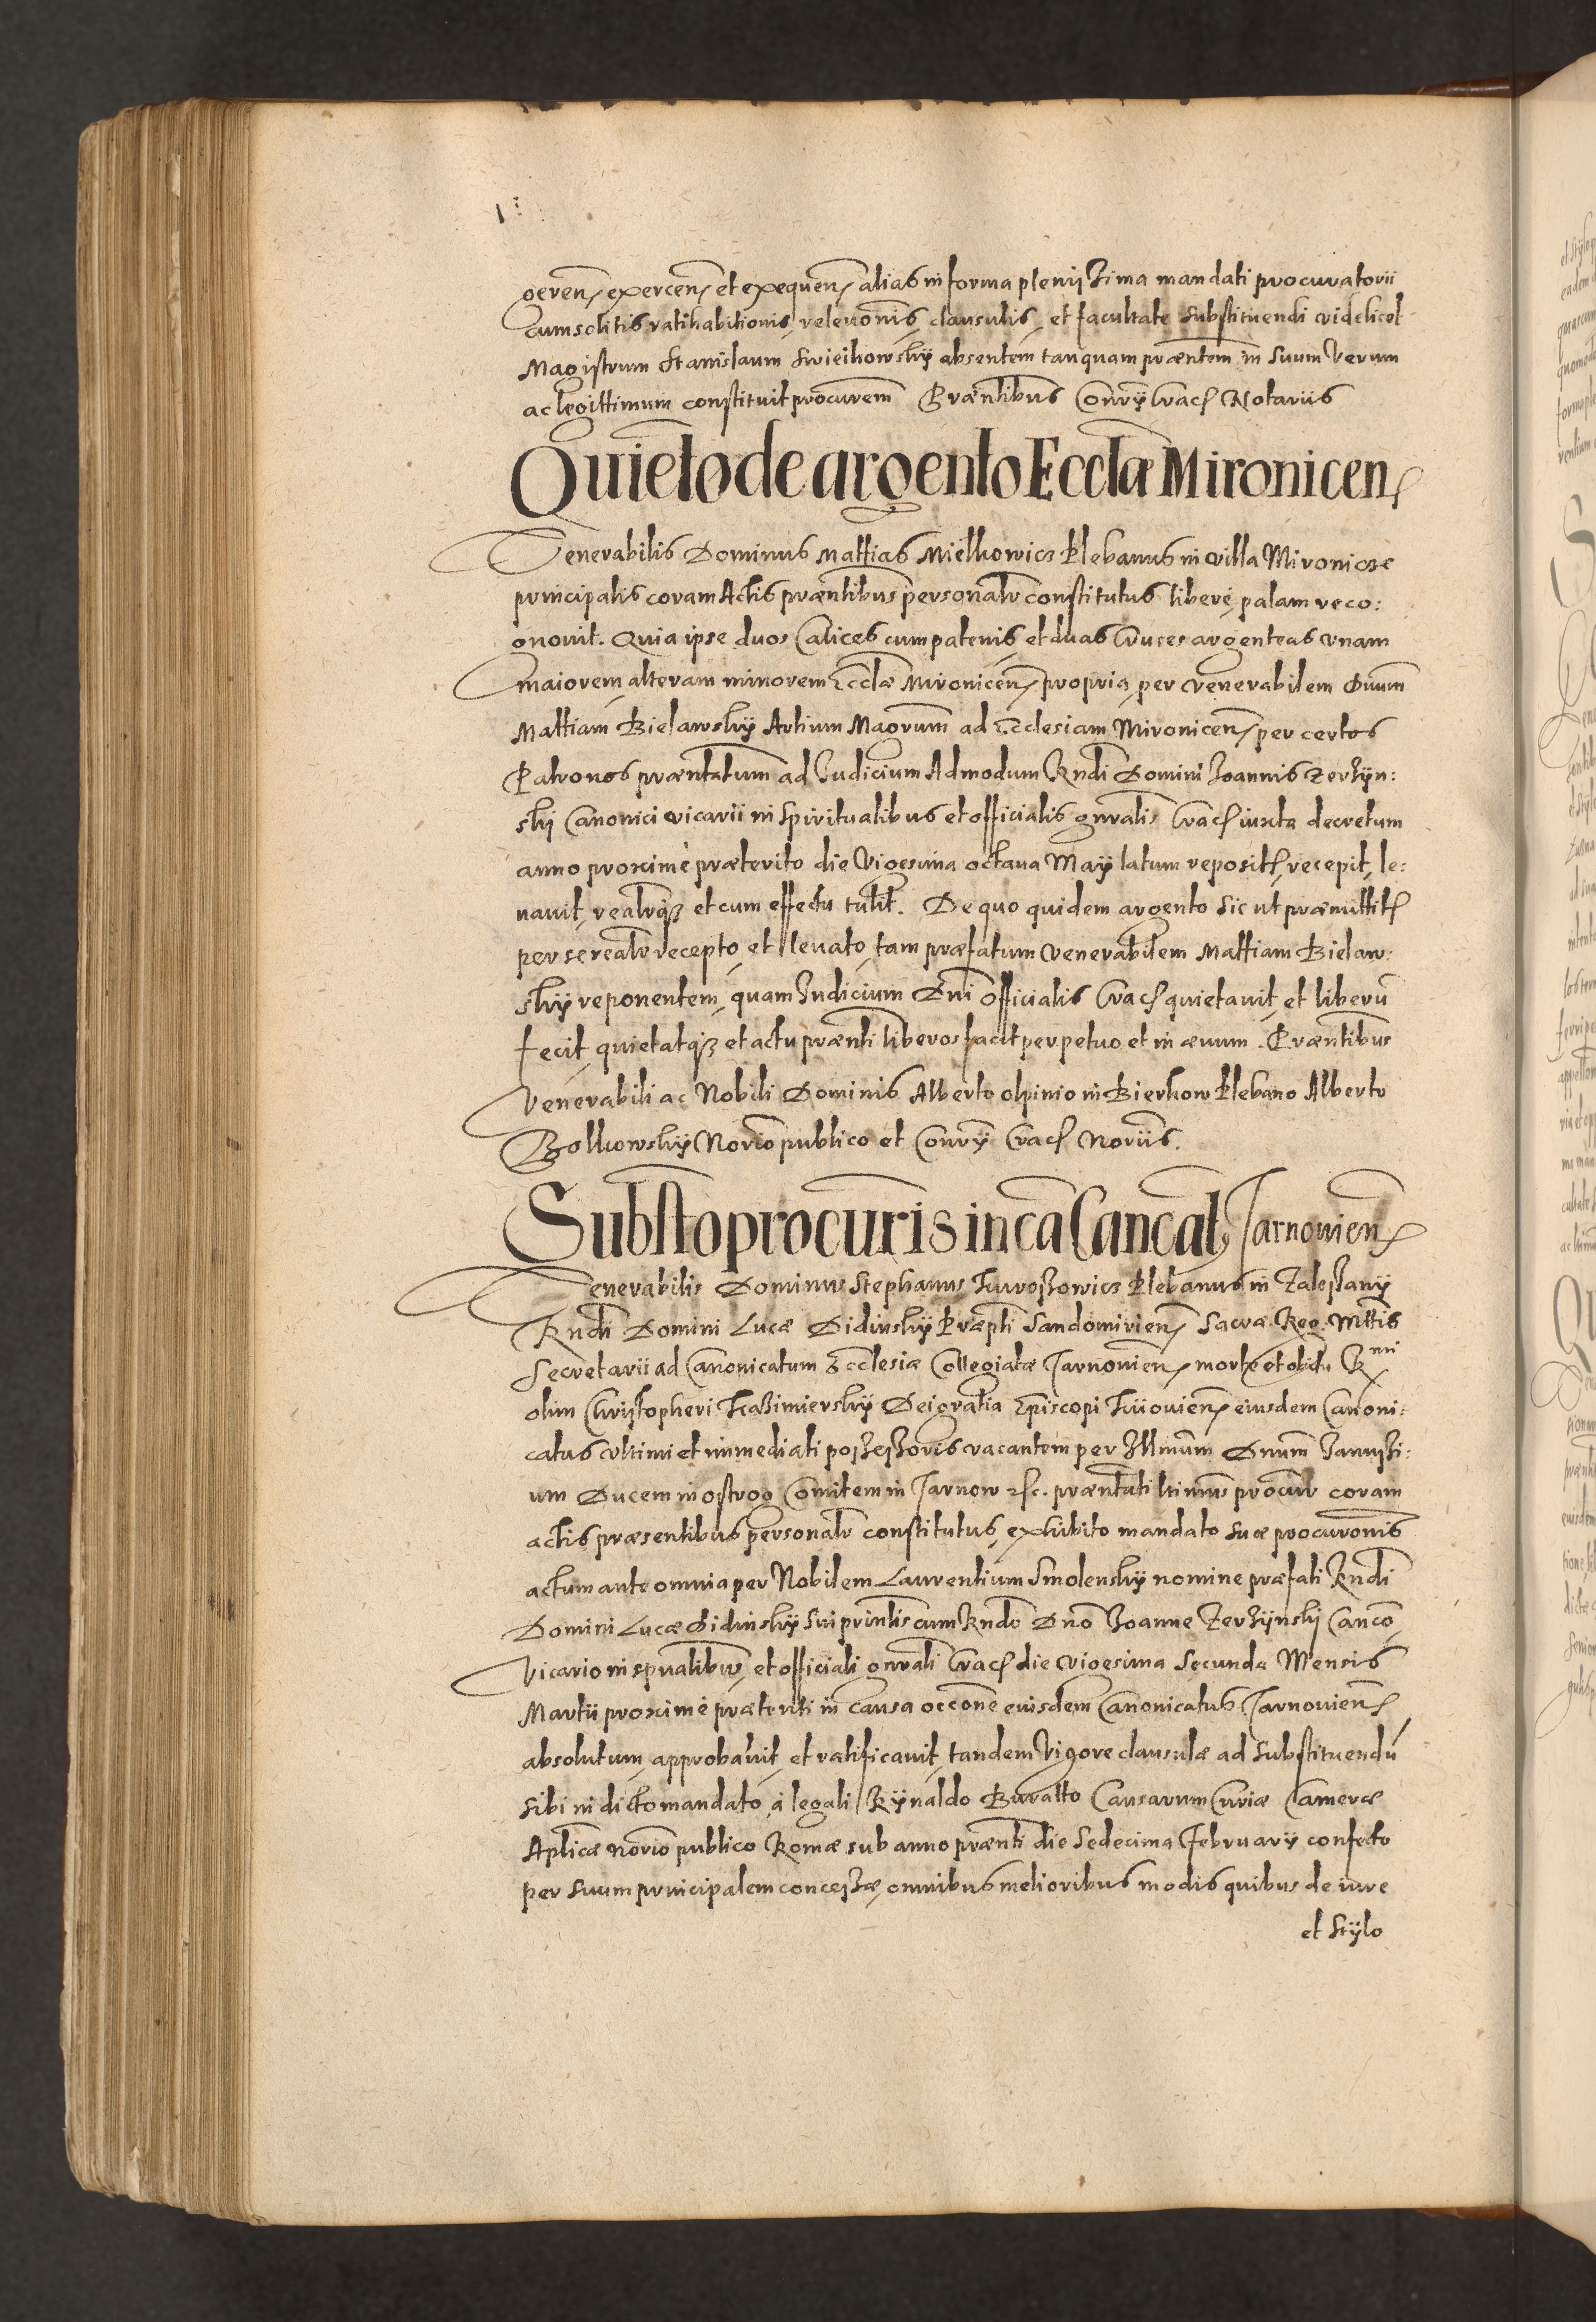 geren exercen et exequen alias in forma plenissima mandati procuratorii
cum solitis ratihabitionis, releuonis, clausulis, et facultate substituendi videlicet
Magistrum Stanislaum absentem tanquam præntem in suum verum
ac legittimum constituit procurem Præntibus Conrÿ Crac Notariis
Quieto de argento Ecclæ Mironicen
Venerabilis Dominus Mattias Mielkowicz Plebanus in villa Mironicze
principalis coram Actis præntibus personalr constitutus libere, palam reco:
gnouit. Quia ipse duos Calices cum patenis, et duas Cruces argenteas vnam
maiorem, alteram minorem Ecclæ Mironicen, propria, per venerabilem Dnum
Mattiam Bielawskÿ Artium Magrum ad Ecclesiam Mironicen, per certos
Patronos præntatum ad Iudicium Admodum Rndi Domini Ioannis Zerzÿn:
skÿ Canonici vicarii in Spiritualibus et officialis gnralis Crac iuxta decretum
anno proxime præterito die Vigesima octaua Maÿ latum reposit, recepit, le:
uauit, realrqz et cum effectu tulit. De quo quidem argento sic ut præmittitr
per se realr recepto, et leuato, tam præfatum venerabilem Mattiam Bielaw:
skÿ reponentem, quam Iudicium Dni Officialis Crac quietauit, et liberu
fecit, quietatqz et actu prænti liberos facit perpetuo et in æuum. Præntibus
Venerabili ac Nobili Dominis Alberto olpinio in Bierkow Plebano Alberto
Bolkowskÿ Norio publico et Conrÿ Crac Noriis.
Substo procuris in ca Cancat, Tarnouien
Venerabilis Dominus Stephanus Kuroszowicz Plebanus in Zaleszanÿ
Rndi Domini Lucæ Didinskÿ Præpti Sandomirien, Sacræ. Reg. Mttis
Secretarii ad Canonicatum Ecclesiæ Collegiatæ Tarnouien, morte et obitu Rmi
olim Christopheri Kazimierskÿ Dei gratia Episcopi Kiiouien, eiusdem Canoni:
catus vltimi et immediati possessoris vacantem per Illmum Dnum Ianussi:
um Ducem in Ostrog Comitem in Tarnow etc. præntati ltimus procur coram
actis præsentibus personalr constitutus, exhibito mandato suæ procuronis
actum ante omnia per Nobilem Laurentium Smolenskÿ nomine præfati Rndi
Domini Lucæ Didinskÿ sui prinlis cum Rndo Dno Ioanne Zerzÿnskÿ Canco,
Vicario in spualibus, et officiali gnrali Crac die vigesima Secunda Mensis
Martii proxime præteriti in causa occone eiusdem Canonicatus Tarnouien
absolutum, approbauit, et ratificauit, tandem Vigore clausulæ ad substituendu
sibi in dicto mandato, à legali Rÿnaldo Buratto Causarum Curiæ Cameræ
Aplicæ norio publico Romæ sub anno prænti die Sedecima Februarÿ confecto
per suum principalem concessæ, omnibus melioribus modis quibus de iure
et Stÿlo